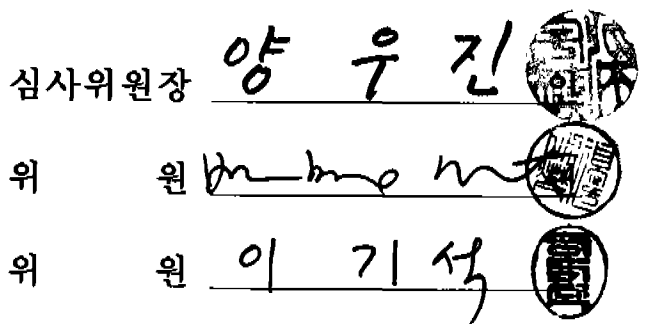 심사위원장 양 우 진
위 원
위 원 이 기 석